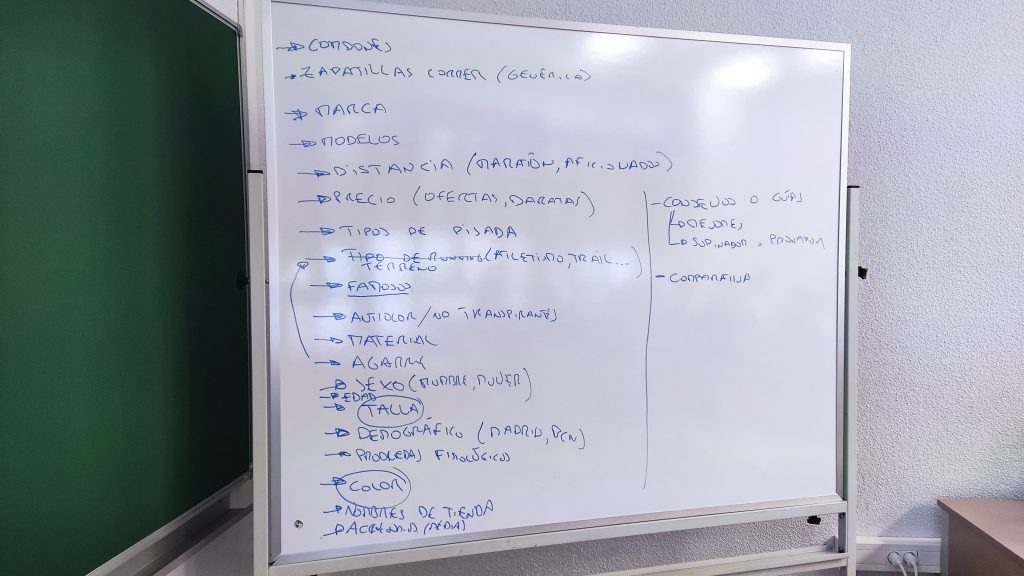 → CORDONES
→ ZAPATILLAS CORRER (GENÉRICO)
→ MARCA
→ MODELOS
→ DISTANCIA (MARATÓN, AFICIONADOS)
→ PRECIO (OFERTAS, BARATAS)
→ TIPOS DE PISADA
→ TIPO DE (ATLETISMO, TRAIL...
TERRENO
→ FAMOSOS
→ ANTIOLOR/NO TRANSPIRANTES
→ MATERIAL
→ AGARRE
→ SEXO (HOMBRE, MUJER)
→ EDAD
→ TALLA
→ DEMOGRÁFICO (MADRID, BCN)
→ PROBLEMAS FISIOLÓGICOS
→ COLOR
→ NOMBRES DE TIENDA
→ ACCESORIOS (MEDIAS)
- CONSEJOS O GUÍAS
→ MEJORES
→ SUPINADOR o PRONADOR
- COMPARATIVA